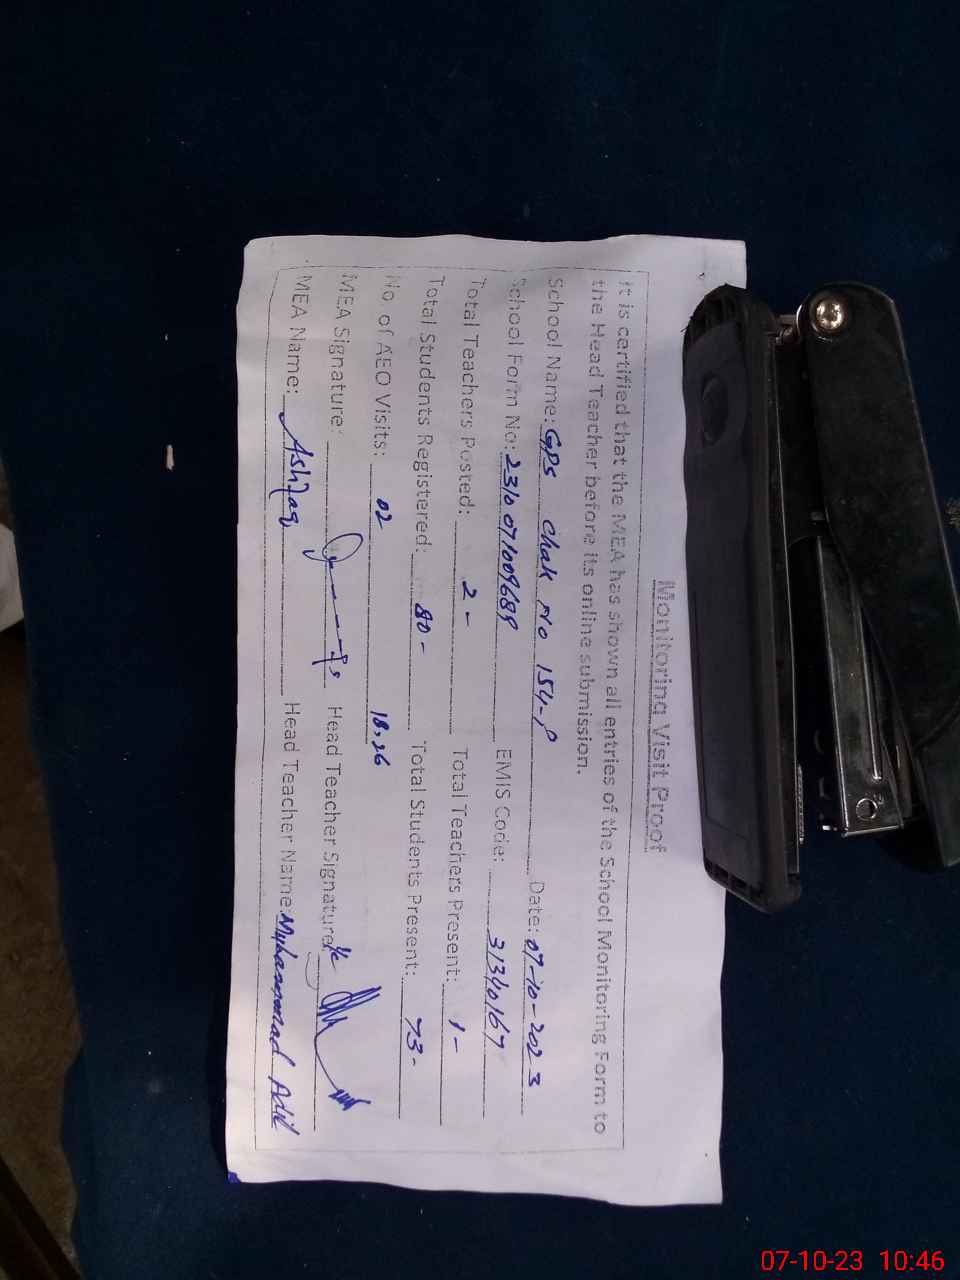 Monitoring Visit Proof
It is certified that the MEA has shown all entries of the School Monitoring Form to
the Head Teacher before its online submission.
School Name: GPS Chak No 154-P Date: 07-10-2023
School Form No: 2310071009689 EMIS Code: 31340167
Total Teachers Posted: 2- Total Teachers Present: 1-
Total Students Registered: 80- Total Students Present: 73-
No of AEO Visits: 02 18,26
MEA Signature: Head Teacher Signature: I/c
MEA Name: Ashfaq Head Teacher Name: Muhammad Adil
07-10-23 10:46